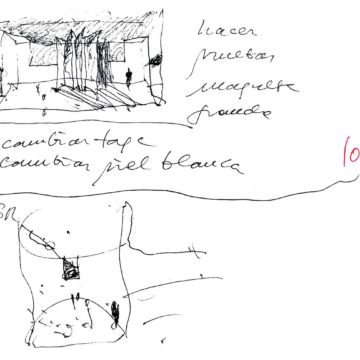 hacer
pruebas
maqueta
grande
cambiar tapa
cambiar piel blanca
10